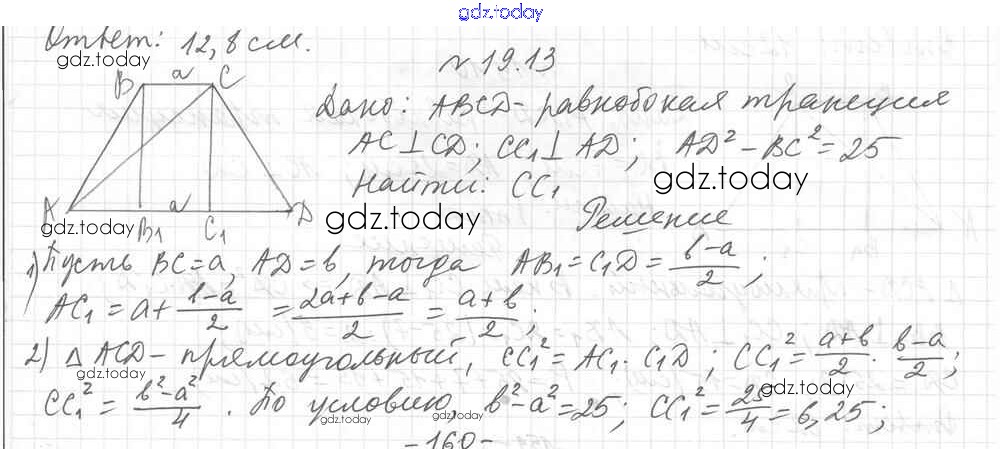 gdz.today
Ответ: 12,8 см.
gdz.today
№19.13
B a C
Дано: ABCD - равнобокая трапеция
AC⊥CD; CC₁⊥AD; AD² - BC² = 25
gdz.today
Найти: CC₁
A a D
gdz.today
B₁ C₁
gdz.today
Решение
1) Пусть BC=a, AD=b, тогда AB₁=C₁D=(b-a)/2;
gdz.today
AC₁ = a+(b-a)/2 = (2a+b-a)/2 = (a+b)/2;
2) △ACD - прямоугольный, CC₁² = AC₁·C₁D; CC₁² = (a+b)/2 · (b-a)/2;
gdz.today
gdz.today
CC₁² = (b²-a²)/4. По условию, b²-a²=25; CC₁² = 25/4 = 6,25;
gdz.today
-160-